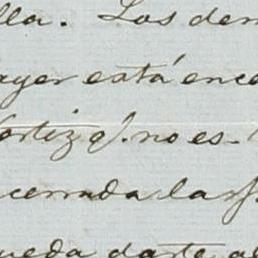 lla. Los dem
ayer está ence
Cortiz q. no es-
cerrada las
ueda darte al